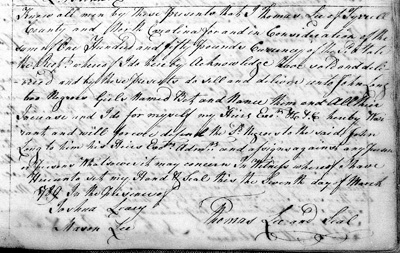 Know all men by these presents that I Thomas Lee of Tyrrell
County and North Carolina for and in Consideration of the
Sum of One Hundred and fifty Pounds Currency of the
the Rect. whereof I do hereby Acknowledge have and deli-
vered and by these presents do sell and deliver unto John
two Negroe Girls Named Bet and Nance them and All their
Increase and I do for myself my Heirs Exrs. &c. hereby War-
rant and will forever defend the sd. Negroes to the said John
Long to him his Heirs Exrs. Admrs. and assigns against any person
or persons Whatsoever it may concern In Witness whereof I have
Hereunto set my Hand & Seal this the Seventh day of March
In the presence of
Joshua
Mason Lee
Thomas Lee and Seal